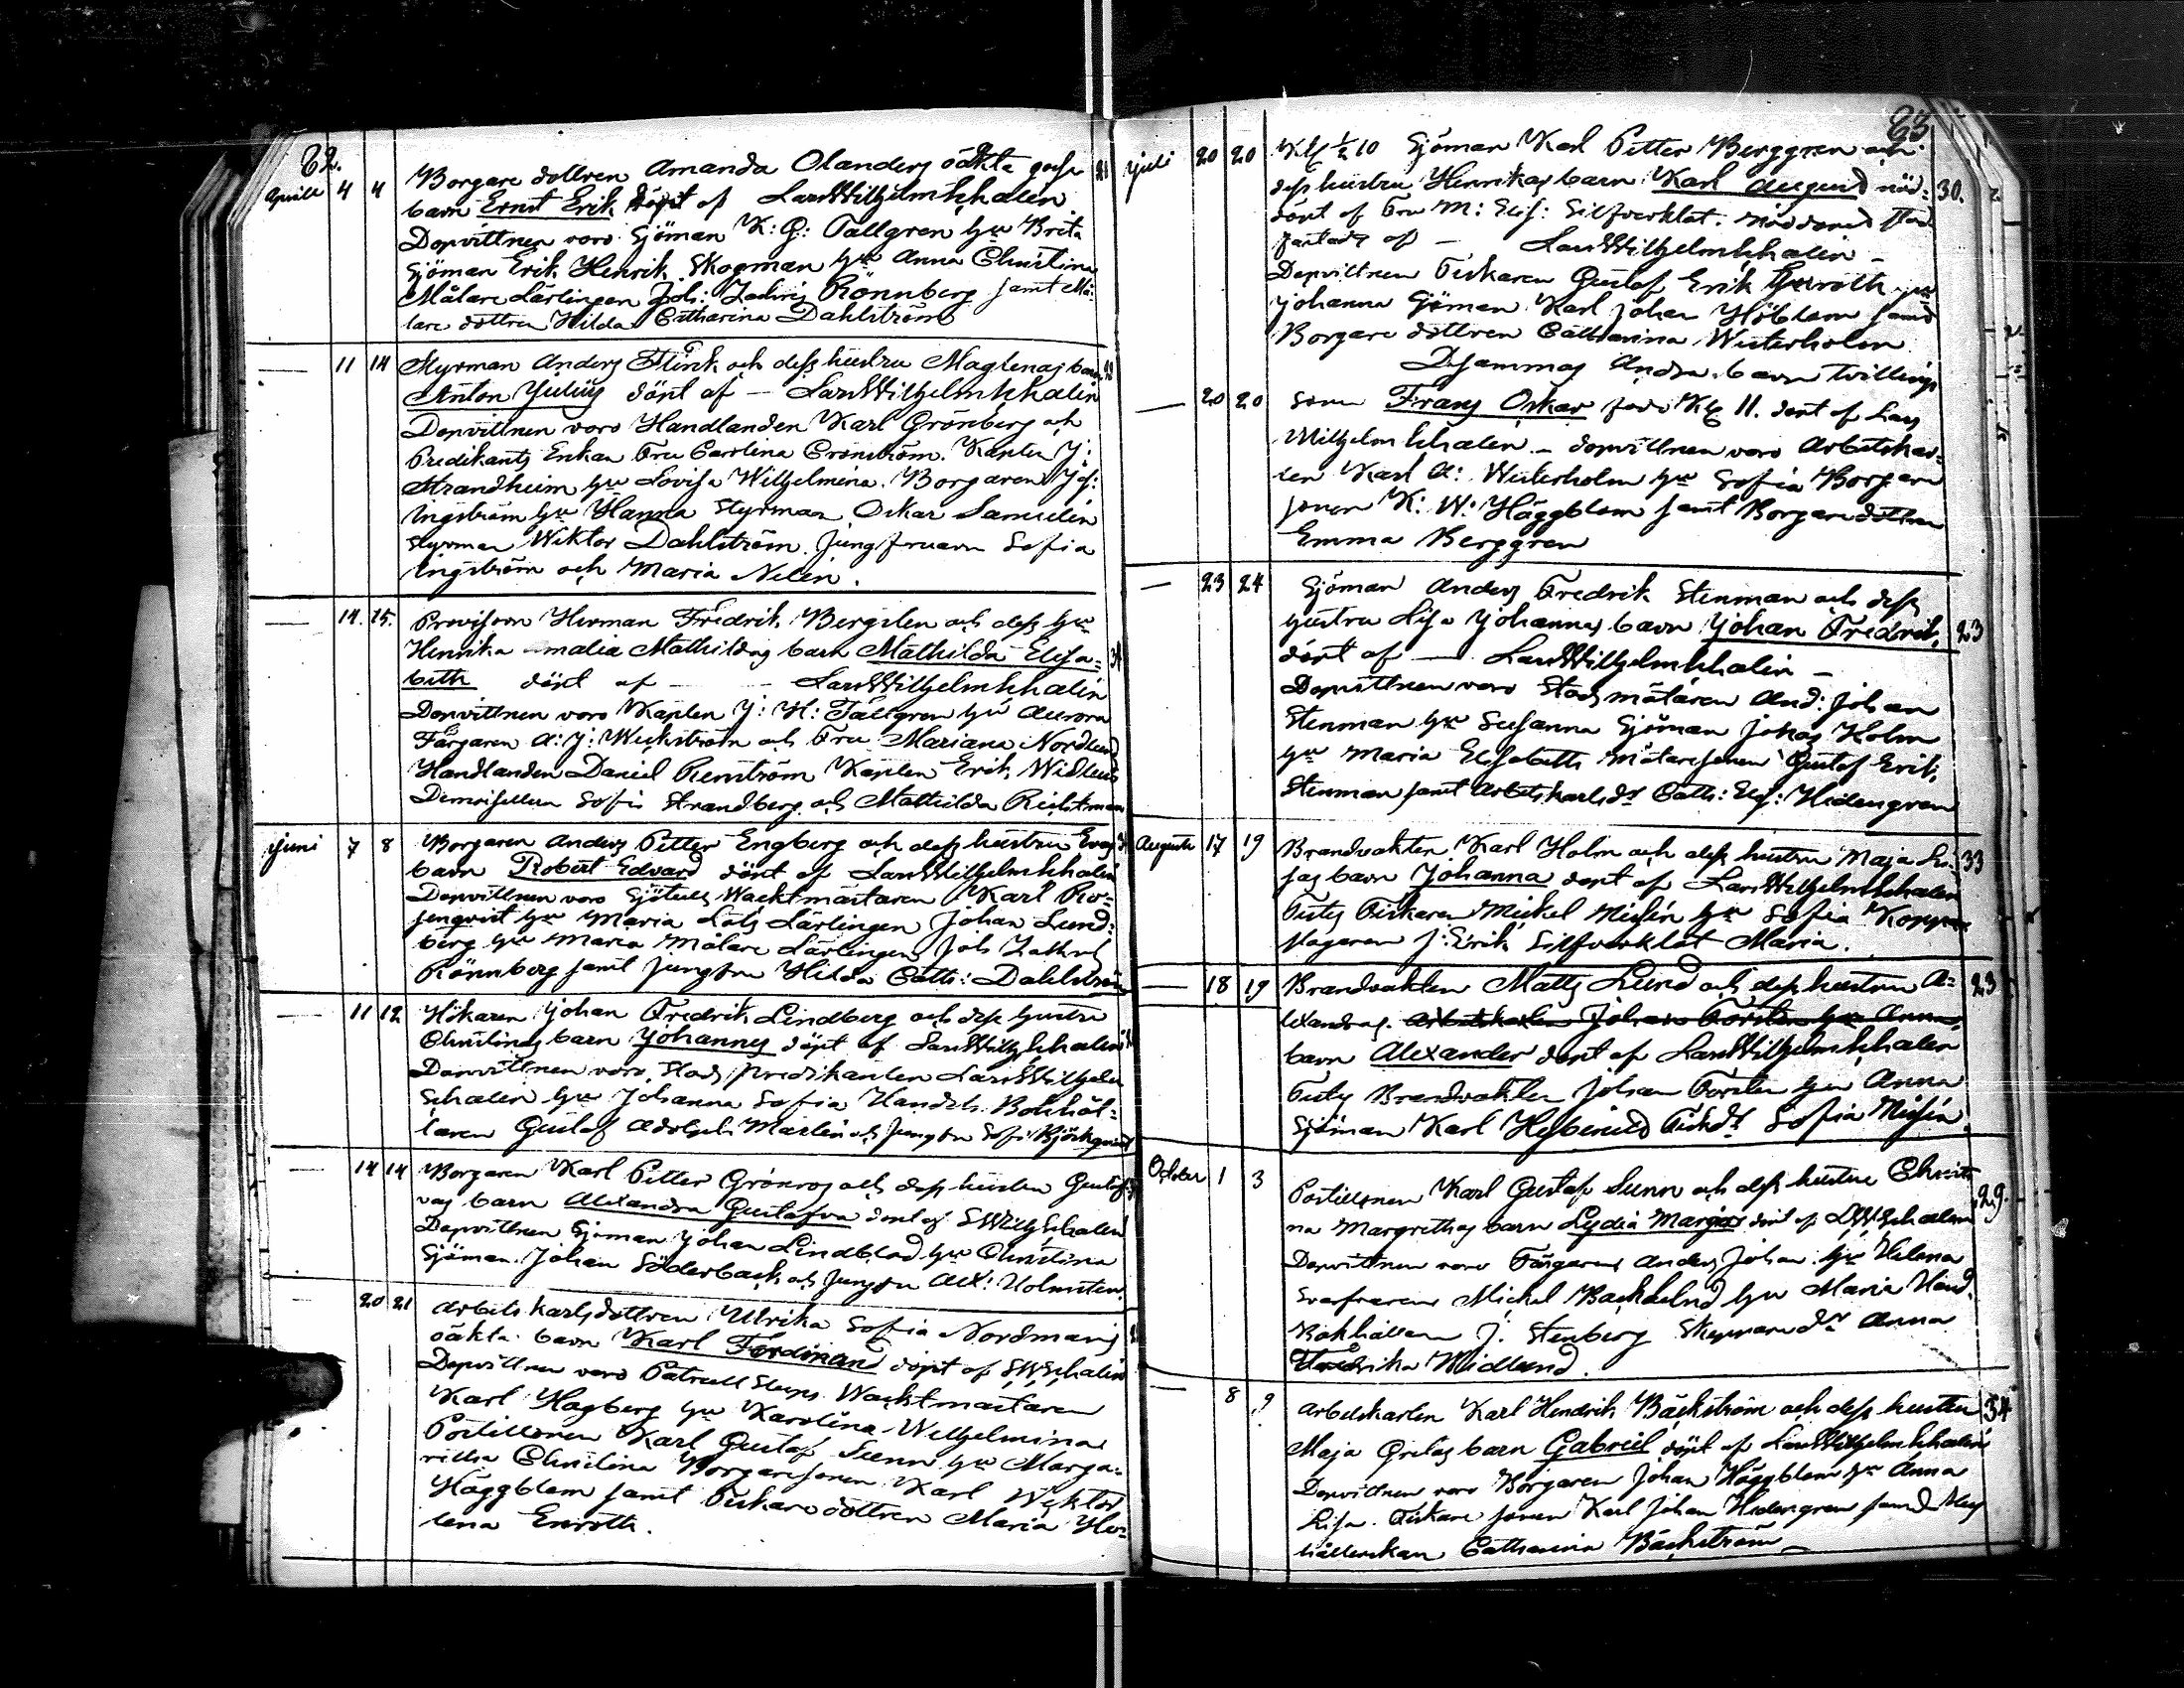 62.
Aprill 4 4 Borgare dottren Amanda Olanders oäkta gosse 21
barn Ernst Erik döpt af Lars Wilhelm Schalin
Dopvittnen voro Sjöman K: G: Tallgren hu Brita
Sjöman Erik Henrik Skogman hu Anna Christina
Målare Lärlingen Joh: Zachris Rönnberg samt Må-
lare dottren Hilda Catharina Dahlström
— 11 14 Styrman Anders Flinck och dess hustru Maglenas barn
Anton Julius döpt af — Lars Wilhelm Schalin
Dopvittnen voro Handlanden Karl Grönberg och
Predikants Enkan Fru Carolina Cronström. Kapten J:
Strandheim hu Lovisa Wilhelmina. Borgaren Js:
Ingström hu Hanna Styrman Oskar Samelin
Styrman Wiktor Dahlström. Jungfruarn Sofia
Ingström och Maria Nelin.
— 14. 15. Provisorn Herman Fredrik Bergelen och dess hu
Henrika Amalia Mathildas barn Mathilda Elisa= 34
beth döpt af — Lars Wilhelm Schalin
Dopvittnen voro Kapten J: H: Tallgren hu Aurora
Färgaren A: J: Wickström och Fru Mariana Nordlund
Handlanden Daniel Renström Kapten Erik Widlund
Demoisellern Sofia Strandberg och Mathilda Richtman
Juni 7 8 Borgaren Anders Petter Engberg och dess hustru Evas
barn Robert Edvard döpt af Lars Wilhelm Schalin
Dopvittnen voro Sjötulls Wachtmästaren Karl Ro-
senqvist hu Maria Lots Lärlingen Johan Lund-
berg hu Maria Målare Lärlingen Joh Zachris
Rönnberg samt Jungfru Hilda Cath: Dahlström
— 11 12 Hökaren Johan Fredrik Lindberg och dess hustru
Christinas barn Johannes döpt af Lars Wilh Schalin
Dopvittnen voro Stads predikanten Lars Wilhelm
Schalin hu Johanna Sofia Handels Bokhål-
laren Gustaf Adolph Marlin och Jungfru Sofi Björkqvist
— 14 14 Borgaren Karl Petter Grönros och dess hustru Gustaf-
vas barn Alexandra Gustafva döpt af L W Schalin
Dopvittnen Sjöman Johan Lindblad hu Christina
Sjöman Johan Söderback och Jungfru Alex: Holmsten.
20 21 Arbets karlsdottren Ulrika Sofia Nordmans
oäkta barn Karl Ferdinand döpt af L W Schalin
Dopvittnen voro Patrull Sleps Wachtmästaren
Karl Hagberg hu Karolina Wilhelmina
Postillonen Karl Gustaf Sunn hu Marga-
ritha Christina Borgaresonen Karl Wiktor
Häggblom samt Fiskare dottren Maria He-
lena Enroth.
63
Juli 20 20 Kl ½ 10 Sjöman Karl Petter Berggren och
dess hustru Henrikas barn Karl August nöd- 30.
döpt af Fru M: Elis: Silfverklot. Nöddopet stad
fästadt af — Lars Wilhelm Schalin —
Dopvittnen Fiskaren Gustaf Erik Enroth hu
Johanna Sjöman Karl Johan Höblom samt
Borgare dottren Catharina Westerholm
Desammas Andra barn Tvillings
— 20 20 sonen Frans Oskar född Kl 11. döpt af Lars
Wilhelm Schalin — dopvittnen voro Arbetskar-
len Karl A: Westerholm hu Sofia Borgare
sonen K: W: Häggblom samt Borgaredottren
Emma Berggren
— 23 24 Sjöman Anders Fredrik Stenman och dess
hustru Lisa Johannas barn Johan Fredrik, 23
döpt af — Lars Wilhelm Schalin —
Dopvittnen voro Stadsmätaren And: Johan
Stenman hu Susanna Sjöman Johas Holm
hu Maria Elisabeth Mätaresonen Gustaf Erik
Stenman samt Arbetskarlsdr Cath: Elis: Hedengren
Augusti 17 19 Brandvakten Karl Holm och dess hustru Maja Li- 33
sas barn Johanna döpt af Lars Wilhelm Schalin
Testes Fiskaren Mickel Nisín hu Sofia Koppar-
slagaren J: Erik Silfverklot Maria.
— 18 19 Brandvakten Matts Lund och dess hustru A= 23
lexandras. Arbetskarlen Johan Forsten hu Anna
barn Alexander döpt af Lars Wilhelm Schalin
Testes Brandvakten Johan Forsten hu Anna
Sjöman Karl Fiskdr Sofia Nisín.
October 1 3 Postillonen Karl Gustaf Sunn och dess hustru Christi
na Margrethas barn Lydia Maria döpt af L W Schalin 29.
Dopvittnen voro Färgaren Anders Johan hu Helena
Svarfvaren Mickel Backlund hu Maria Hand.
Bokhållaren J. Stenberg Skepparedr Anna
Fredrika Widlund.
— 8 9 Arbetskarlen Karl Hendrik Bäckström och dess hustru 34
Maja Gretas barn Gabriel döpt af Lars Wilhelm Schalin
Dopvittnen voro Borgaren Johan Häggblom hu Anna
Lisa. Fiskare sonen Karl Johan Hedengren samt Hus
hållerskan Catharina Bäckström